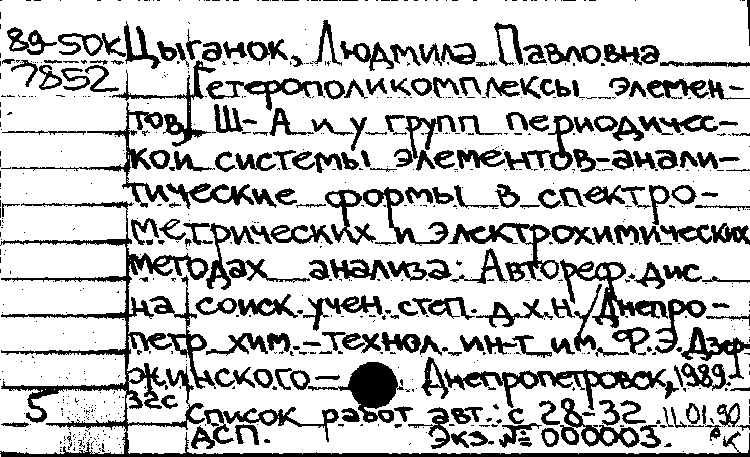 89-50к Цыганок, Людмила Павловна
7852 Гетерополикомплексы элемен-
тов Ш-А и у групп периодичес-
кои системы элементов-анали-
тические формы в спектро-
метрических и электрохимических
методах анализа: Автореф. дис.
на соиск. учен. степ. д.х.н. / Днепро-
петр хим.-технол. ин-т им. Ф.Э. Дзер-
жинского- Днепропетровск, 1989.-
5 32с
Список работ авт.: с 28-32 11.01.90
АСП. Экз. № 000003. рк